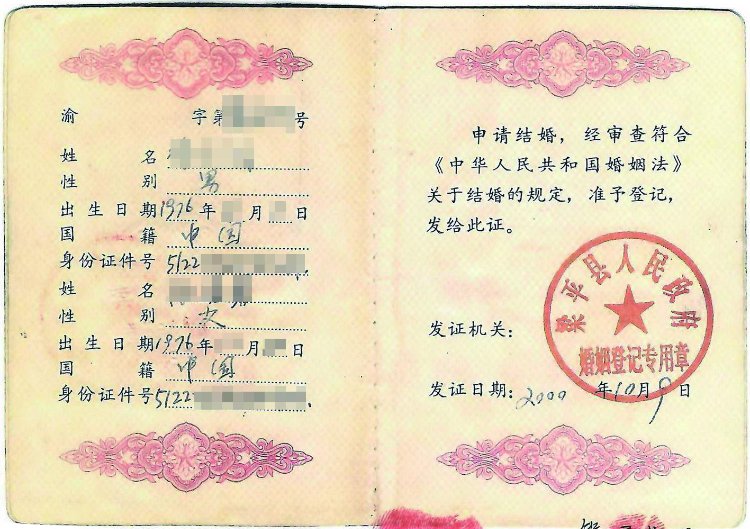 渝 字第 号
姓 名
性 别 男
出生日期 1976 年 月 日
国 籍 中国
身份证件号 5122
姓 名
性 别 女
出生日期 1976 年 月 日
国 籍 中国
身份证件号 5122
申请结婚，经审查符合
《中华人民共和国婚姻法》
关于结婚的规定，准予登记，
发给此证。
梁平县人民政府
婚姻登记专用章
发证机关：
发证日期：2000 年 10 月 9 日